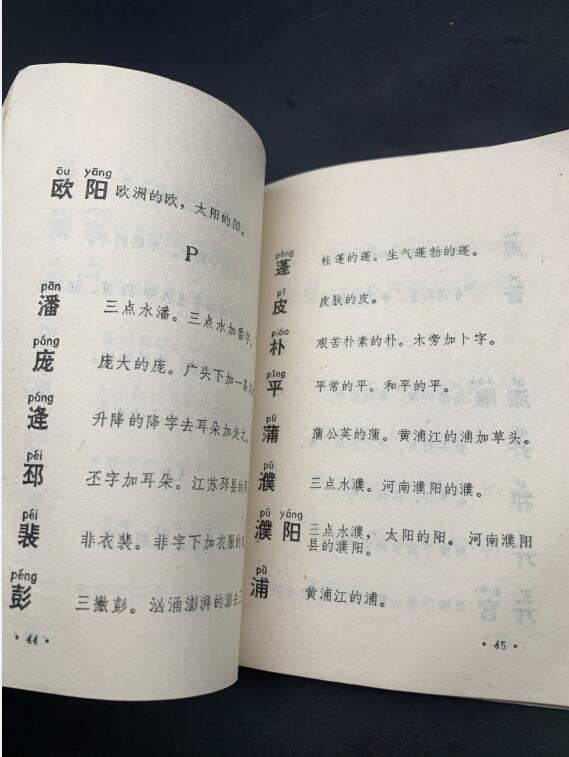 ōu yáng
欧阳 欧洲的欧，太阳的阳。
P
pān
潘 三点水潘。三点水加番字。
páng
庞 庞大的庞。广头下加一条
páng
逄 升降的降字去耳朵加走之。
péi
邳 丕字加耳朵。江苏邳县的
péi
裴 非衣裴。非字下加衣服的
péng
彭 三撇彭。汹涌澎湃的澎去三
·44·
péng
蓬 帐蓬的蓬。生气蓬勃的蓬。
pí
皮 皮肤的皮。
piáo
朴 艰苦朴素的朴。木旁加卜字。
píng
平 平常的平。和平的平。
pú
蒲 蒲公英的蒲。黄浦江的浦加草头。
pú
濮 三点水濮。河南濮阳的濮。
pú yáng
濮阳 三点水濮，太阳的阳。河南濮阳
县的濮阳。
pǔ
浦 黄浦江的浦。
·45·